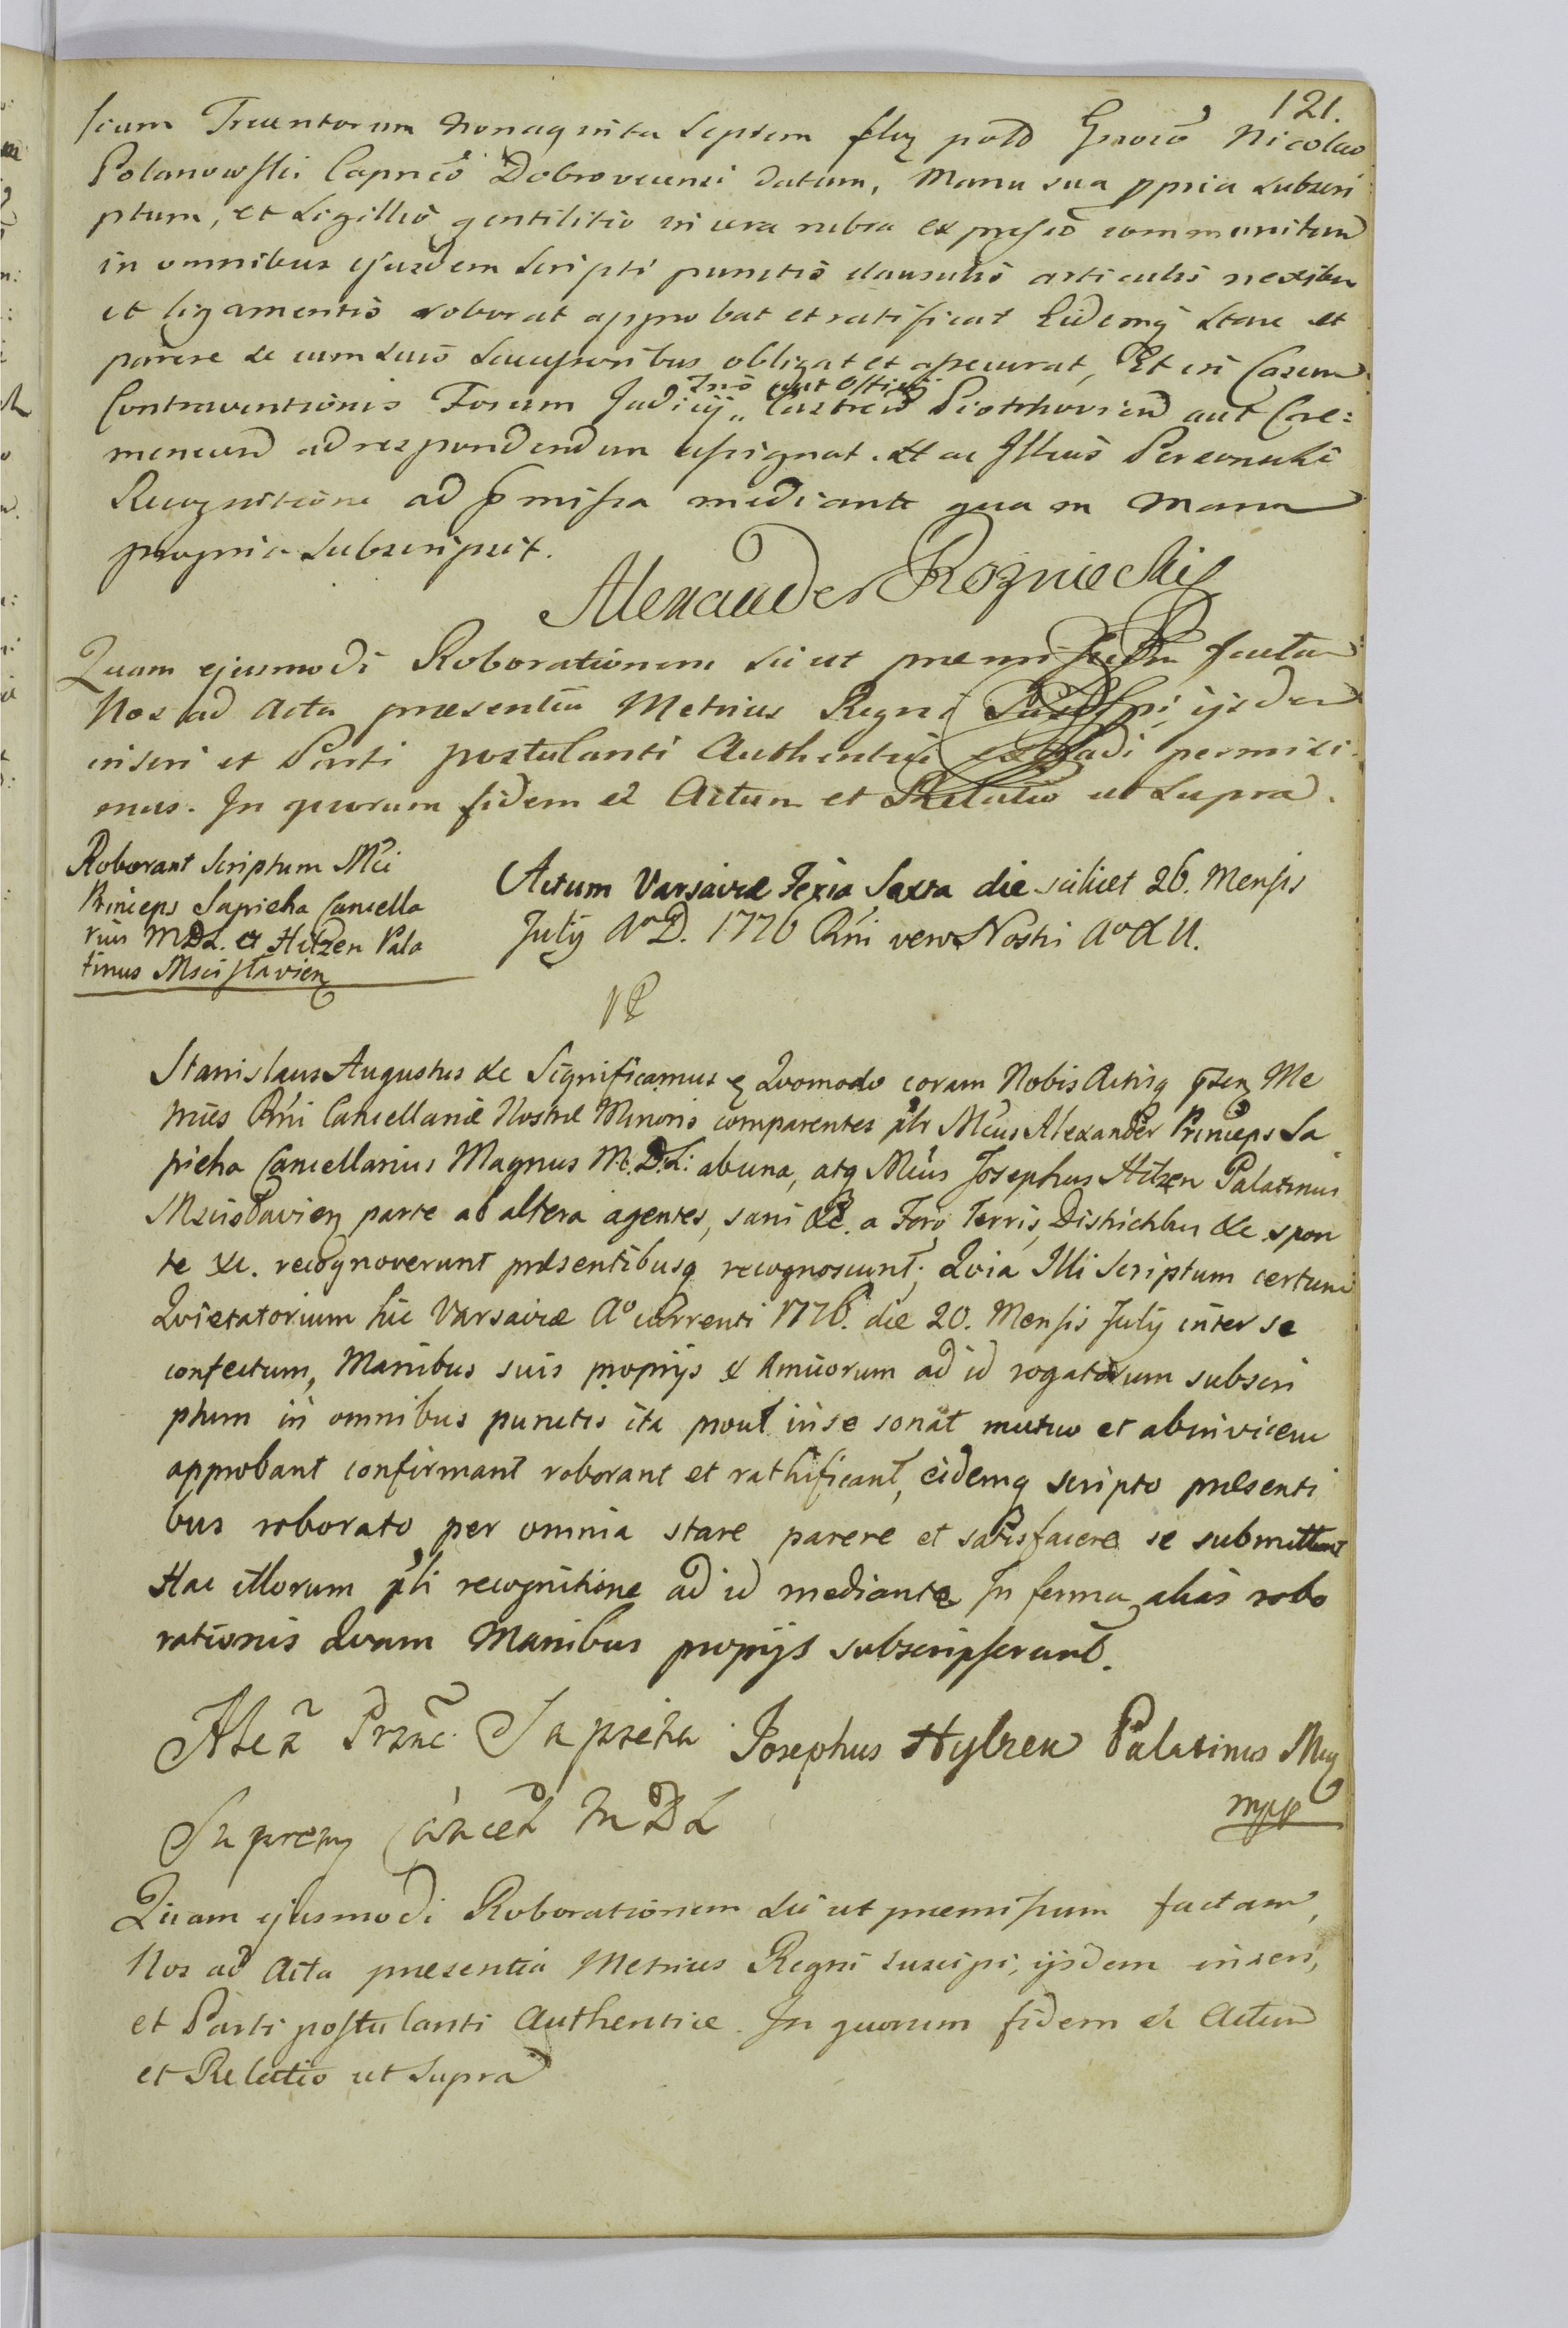 121.
sium Trecentorum Nonaginta Septem flor polo Gnoso Nicolao
Polanowski Capneo Dobrovicensi datum, Manu sua ppria subscri
ptum, et Sigillis gentilitio in cera rubra expresso communitum
in omnibus ejusdem Scripti punctis clausulis articulis nexibus
et ligamentis roborat approbat et ratificat Eidemq stare et
parere se cum suis Successoribus obligat et assecurat, Et in Casum
Tris aut Officij
Contraventionis Forum Judicij Castren Piotrkovien aut Cre=
menecen ad respondendum assignat. Hac Illius Personali
Recognitione ad pmissa mediante quam Manu
propria subscripsit.
Alexander Rozniecki
Quam ejusmodi Roborationem sicut praemissum factam
Nos ad Acta praesentia Metrices Regni Suscipi, ijsdem
inseri et Parti postulanti Authentice extradi permisi
mus. In quorum fidem et Actum et Relatio ut supra.
Roborant Scriptum Mci
Princeps Sapieha Cancella
rius MDL. et Hilzen Pala
tinus Mscislavien
Actum Varsaviæ Feria Sexta die scilicet 26. Mensis
July Ao D. 1776 Rni vero Nostri Ao XII.
Stanislaus Augustus &c Significamus &c Quomodo coram Nobis Actisq psen Me
trices Rni Cancellariæ Nostræ Minoris comparentes plr Mcus Alexander Princeps Sa
pieha Cancellarius Magnus M.D.L: ab una, atq Mcus Josephus Hilzen Palatinus
Mscislavien parte ab altera agentes, sani &c. a Foro Terris, Districtibus &c spon
te &c. recognoverunt præsentibusq recognoscunt; Quia Illi Scriptum certum
Quietatorium hic Varsaviæ Ao currenti 1776. die 20. Mensis July inter se
confectum, Manibus suis proprijs & Amicorum ad id rogatorum subscri
ptum in omnibus punctis ita prout in se sonat mutuo et ab invicem
approbant confirmant roborant et rathificant, eidemq scripto præsenti
bus roborato per omnia stare parere et satisfacere se submittunt
Hac illorum pli recognitione ad id mediante In forma alias robo
rationis Quam Manibus proprijs subscripserunt.
Alex Prznc Sapieha Josephus Hylzen Palatinus Mscy
mpp
Supremy Cancel MDL
Quam ejusmodi Roborationem sicut praemissum factam,
Nos ad Acta praesentia Metrices Regni suscipi, ijsdem inseri,
et Parti postulanti Authentice. In quorum fidem et Actum
et Relatio ut supra